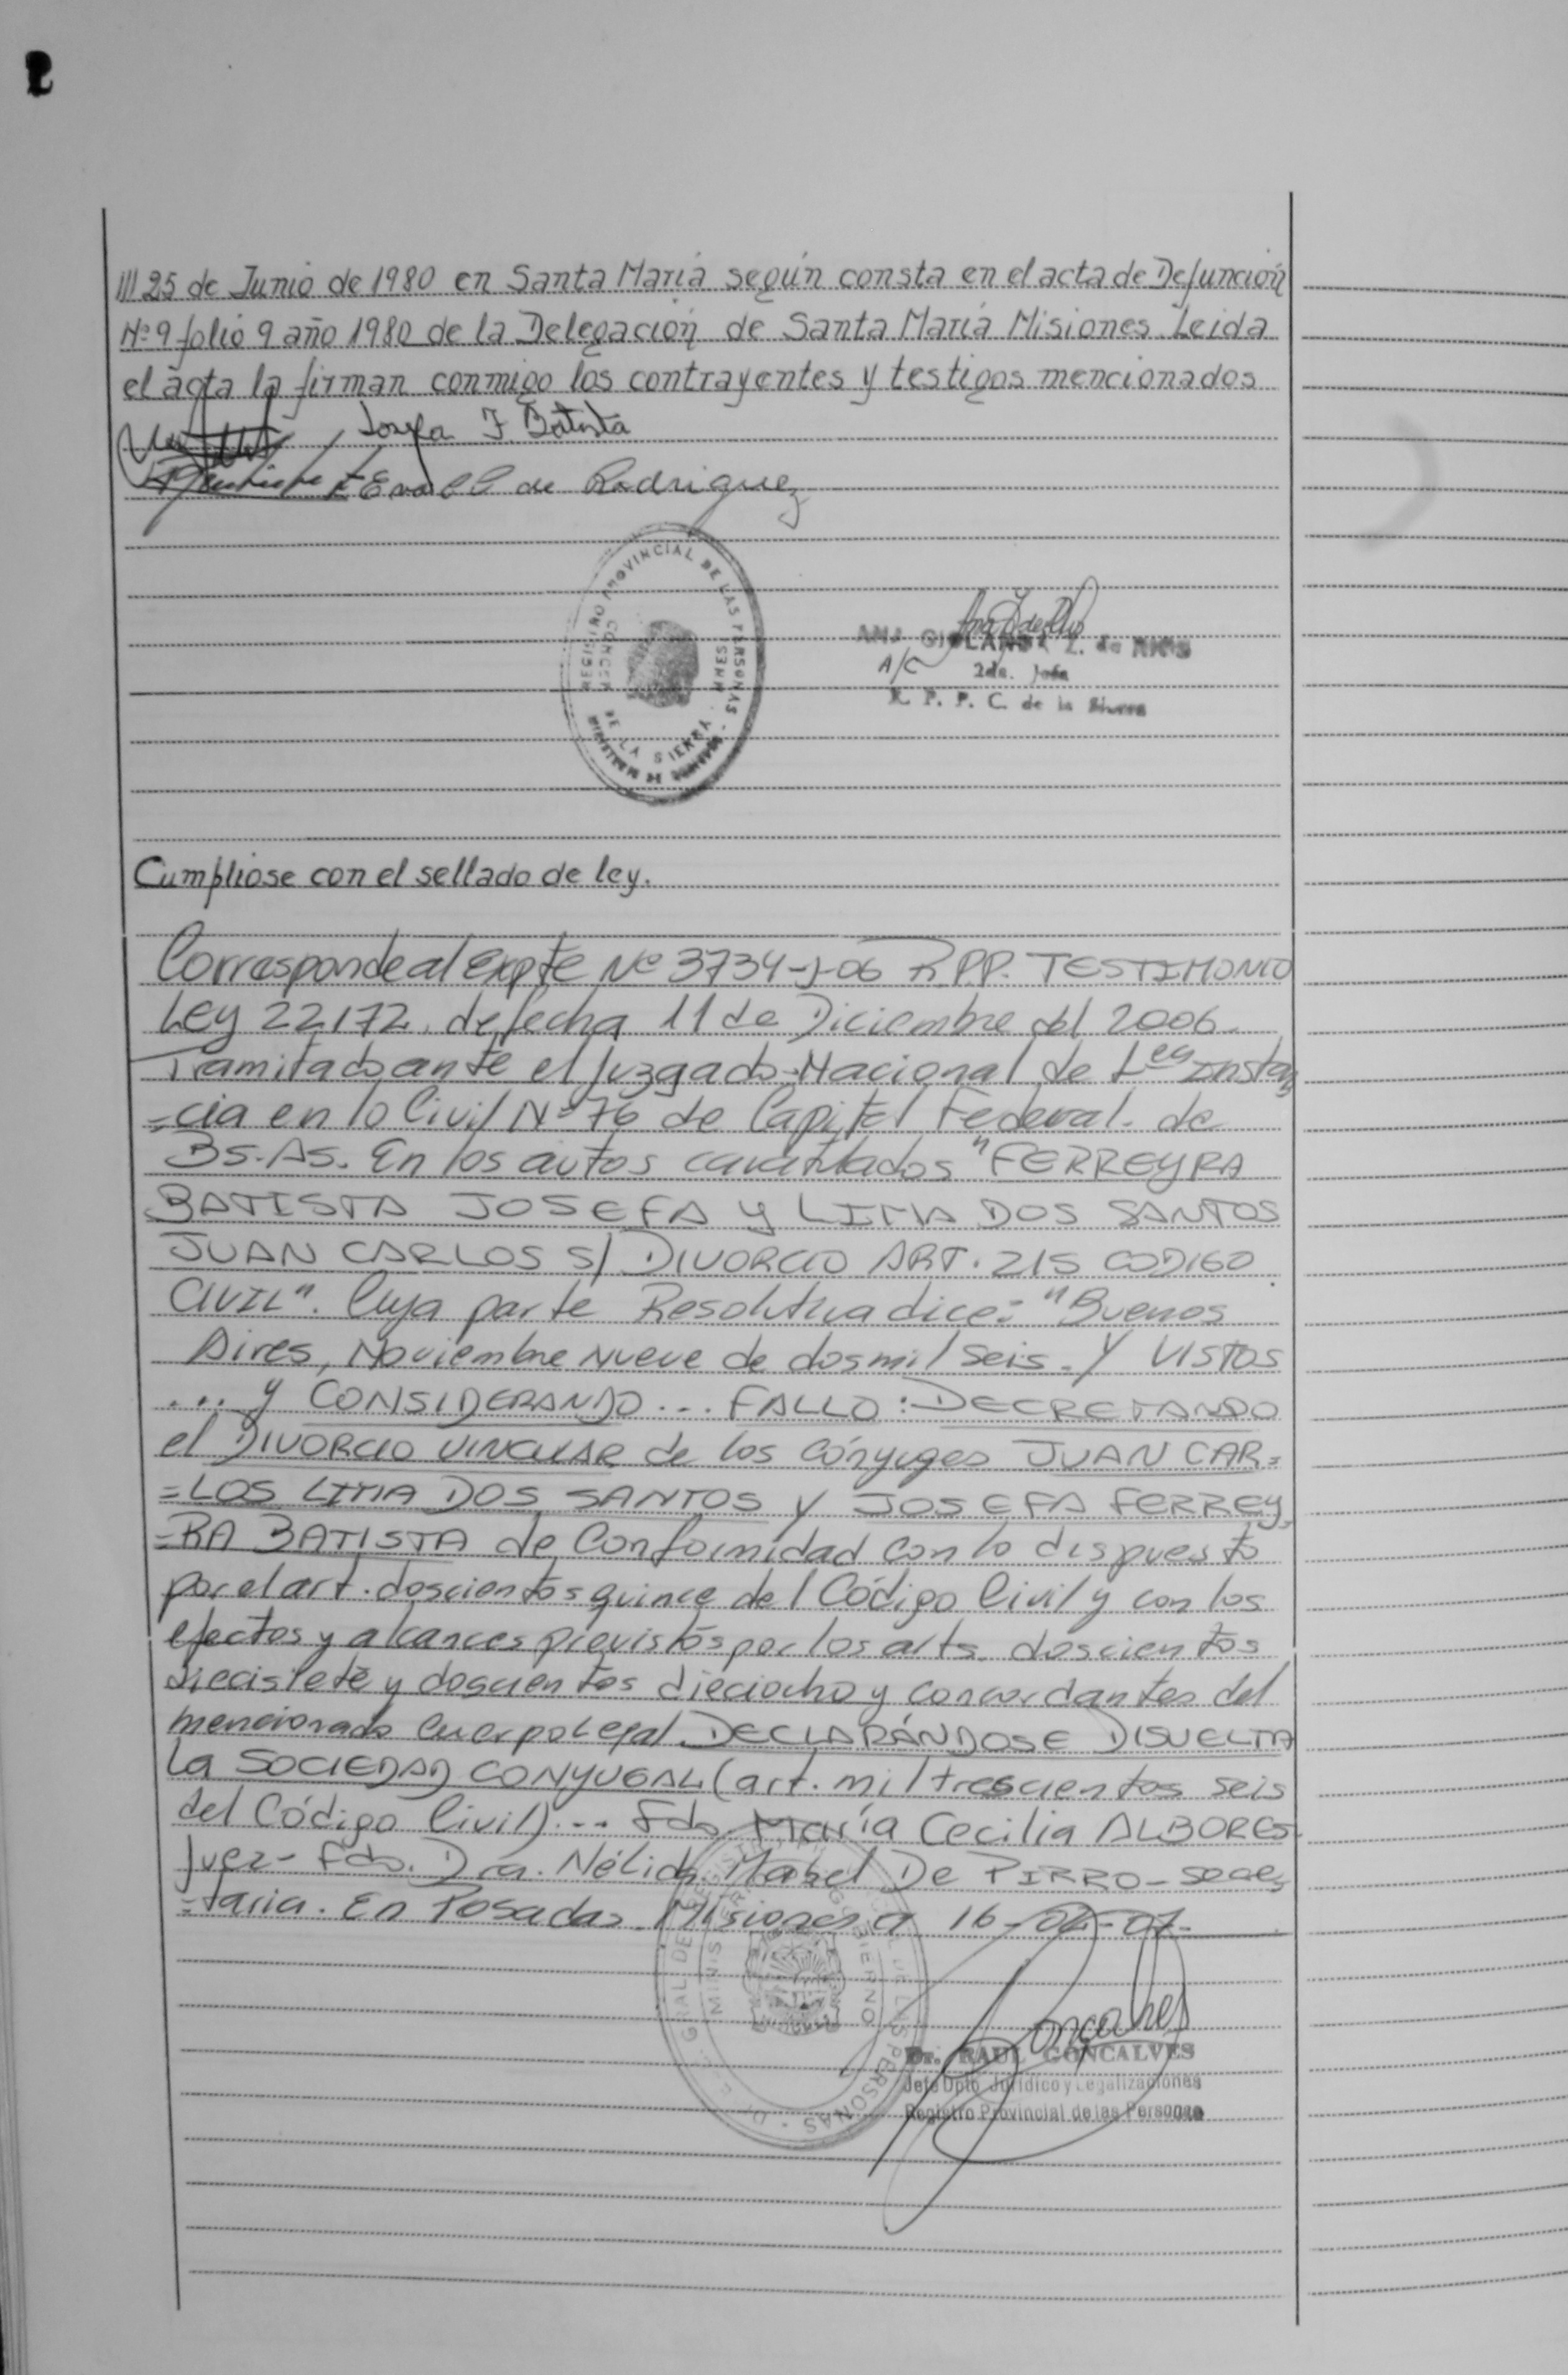 /// 25 de Junio de 1980 en Santa María según consta en el acta de Defunción
Nº 9 folio 9 año 1980 de la Delegación de Santa María Misiones. Leida
el acta la firman conmigo los contrayentes y testigos mencionados
Josefa F. Batista
de Rodriguez
REGISTRO PROVINCIAL DE LAS PERSONAS
DE LA SIERRA
Z. de RIOS
A/C 2da. Jefa
R. P. P. C. de la Sierra
Cumpliose con el sellado de ley.
Corresponde al Expte Nº 3734-J-06 R.P.P. TESTIMONIO
Ley 22.172. de fecha 11 de Diciembre del 2006.
Tramitado ante el Juzgado Nacional de Instan
=cia en lo Civil Nº 76 de Capital Federal. de
BS.AS. En los autos caratulados "FERREYRA
BATISTA JOSEFA Y LIMA DOS SANTOS
JUAN CARLOS S/ DIVORCIO ART. 215 CODIGO
CIVIL". Cuya parte Resolutiva dice: "Buenos
Aires, Noviembre nueve de dos mil seis. Y VISTOS
.... y CONSIDERANDO ... FALLO: DECRETANDO
el DIVORCIO VINCULAR de los cónyuges JUAN CAR=
=LOS LIMA DOS SANTOS y JOSEFA FERREY
=RA BATISTA de Conformidad con lo dispuesto
por el art. doscientos quince del Código Civil y con los
efectos y alcances previstos por los arts. doscientos
diecisiete y doscientos dieciocho y concordantes del
mencionado cuerpo legal DECLARÁNDOSE DISUELTA
la SOCIEDAD CONYUGAL (art. mil trescientos seis
del Código Civil) ... Fdo. María Cecilia ALBORES
Juez- Fdo. Dra. Nélida Mabel De PIRRO- Secre
=taria. En Posadas Misiones a 16-02-07.
MINISTERIO GOBIERNO
DE LAS PERSONAS
Goncalves
Dr. RAUL GONCALVES
Jefe Dpto. Jurídico y Legalizaciones
Registro Provincial de las Personas